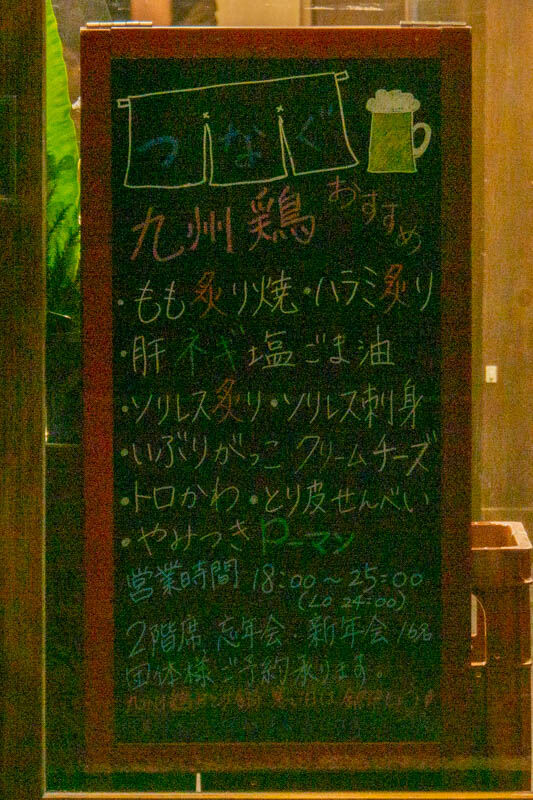 つなぐ
九州鶏 おすすめ
・もも炙り焼・ハラミ炙り
・肝ネギ塩ごま油
・ソリレス炙り・ソリレス刺身
・いぶりがっこ クリームチーズ
・トロかわ・とり皮せんべい
・やみつきPーマン
営業時間 18:00～25:00
(LO 24:00)
2階席 忘年会・新年会 16名
団体様ご予約承ります。